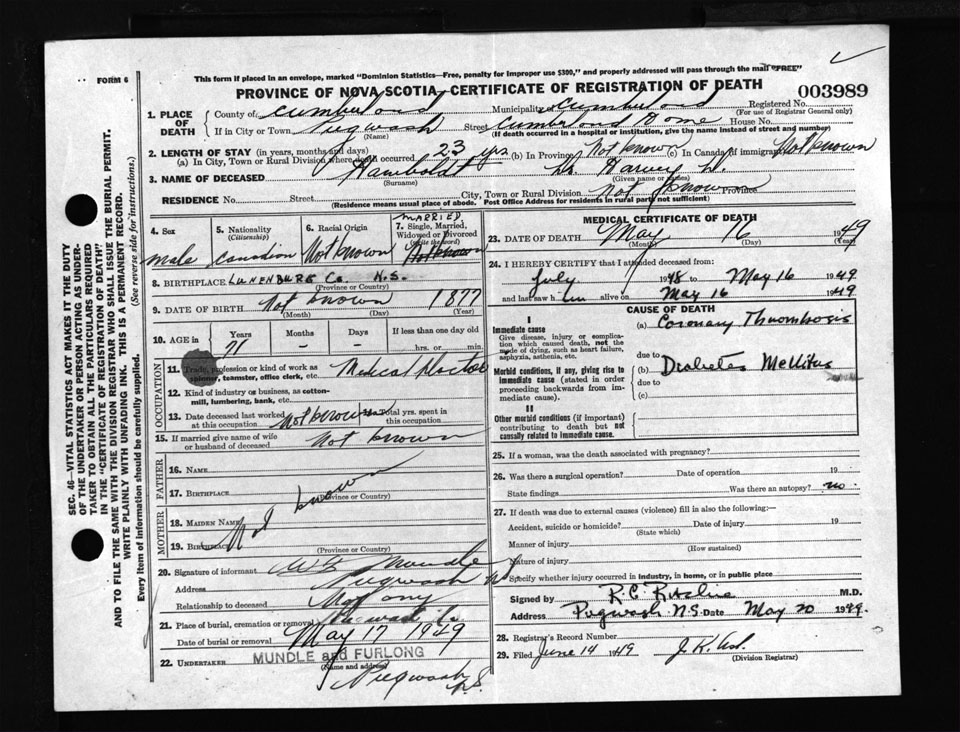 FORM 6
This form if placed in an envelope, marked "Dominion Statistics—Free, penalty for improper use $300," and properly addressed will pass through the mail "FREE"
PROVINCE OF NOVA SCOTIA—CERTIFICATE OF REGISTRATION OF DEATH
003989
1. PLACE OF DEATH
County of Cumberland Municipality of Cumberland Registered No.
(For use of Registrar General only)
If in City or Town Pugwash Street Cumberland Home House No.
(Name) (If death occurred in a hospital or institution, give the name instead of street and number)
2. LENGTH OF STAY (in years, months and days)
(a) In City, Town or Rural Division where death occurred 23 yrs (b) In Province Not known (c) In Canada if immigrant Not known
3. NAME OF DECEASED Hamboldt Dr. Harvey
(Surname) (Given name or names)
RESIDENCE No. Street City, Town or Rural Division Not known Province
(Residence means usual place of abode. Post Office Address for residents in rural parts not sufficient)
4. Sex
male
5. Nationality
(Citizenship)
Canadian
6. Racial Origin
Not known
MARRIED
7. Single, Married, Widowed or Divorced
(write the word)
Not known
8. BIRTHPLACE LUNENBURG Co. N.S.
(Province or Country)
9. DATE OF BIRTH Not known 1877
(Month) (Day) (Year)
10. AGE in
Years Months Days If less than one day old
71 - - hrs. or min.
OCCUPATION
11. Trade, profession or kind of work as spinner, teamster, office clerk, etc. Medical Doctor
12. Kind of industry or business, as cotton-mill, lumbering, bank, etc.
13. Date deceased last worked at this occupation Not known
14. Total yrs. spent in this occupation
15. If married give name of wife or husband of deceased Not known
FATHER
16. NAME
17. BIRTHPLACE
(Province or Country)
MOTHER
18. MAIDEN NAME
19. BIRTHPLACE
(Province or Country)
Not known
20. Signature of informant Mundle
Address Pugwash NS
Relationship to deceased
21. Place of burial, cremation or removal Pugwash
Date of burial or removal May 17 1949
22. UNDERTAKER MUNDLE and FURLONG
(Name and address)
Pugwash N.S.
MEDICAL CERTIFICATE OF DEATH
23. DATE OF DEATH May 16 1949
(Month) (Day) (Year)
24. I HEREBY CERTIFY that I attended deceased from:
July 1948 to May 16 1949
and last saw him alive on May 16 1949
CAUSE OF DEATH
I
Immediate cause
Give disease, injury or complication which caused death, not the mode of dying, such as heart failure, asphyxia, asthenia, etc.
(a) Coronary Thrombosis
due to
Morbid conditions, if any, giving rise to immediate cause (stated in order proceeding backwards from immediate cause).
(b) Diabetes Mellitus
due to
(c)
II
Other morbid conditions (if important) contributing to death but not causally related to immediate cause.
25. If a woman, was the death associated with pregnancy?
26. Was there a surgical operation? Date of operation 19
State findings Was there an autopsy? no
27. If death was due to external causes (violence) fill in also the following:—
Accident, suicide or homicide? Date of injury 19
(State which)
Manner of injury
(How sustained)
Nature of injury
Specify whether injury occurred in industry, in home, or in public place
Signed by R.C. Ritchie M.D.
Address Pugwash N.S. Date May 20 1949.
28. Registrar's Record Number
29. Filed June 14 1949
(Division Registrar)
SEC. 46—VITAL STATISTICS ACT MAKES IT THE DUTY
OF THE UNDERTAKER OR PERSON ACTING AS UNDER-
TAKER TO OBTAIN ALL THE PARTICULARS REQUIRED
IN THE "CERTIFICATE OF REGISTRATION OF DEATH"
AND TO FILE THE SAME WITH THE DIVISION REGISTRAR WHO SHALL ISSUE THE BURIAL PERMIT.
WRITE PLAINLY WITH UNFADING INK. THIS IS A PERMANENT RECORD.
Every item of information should be carefully supplied. (See reverse side for instructions.)